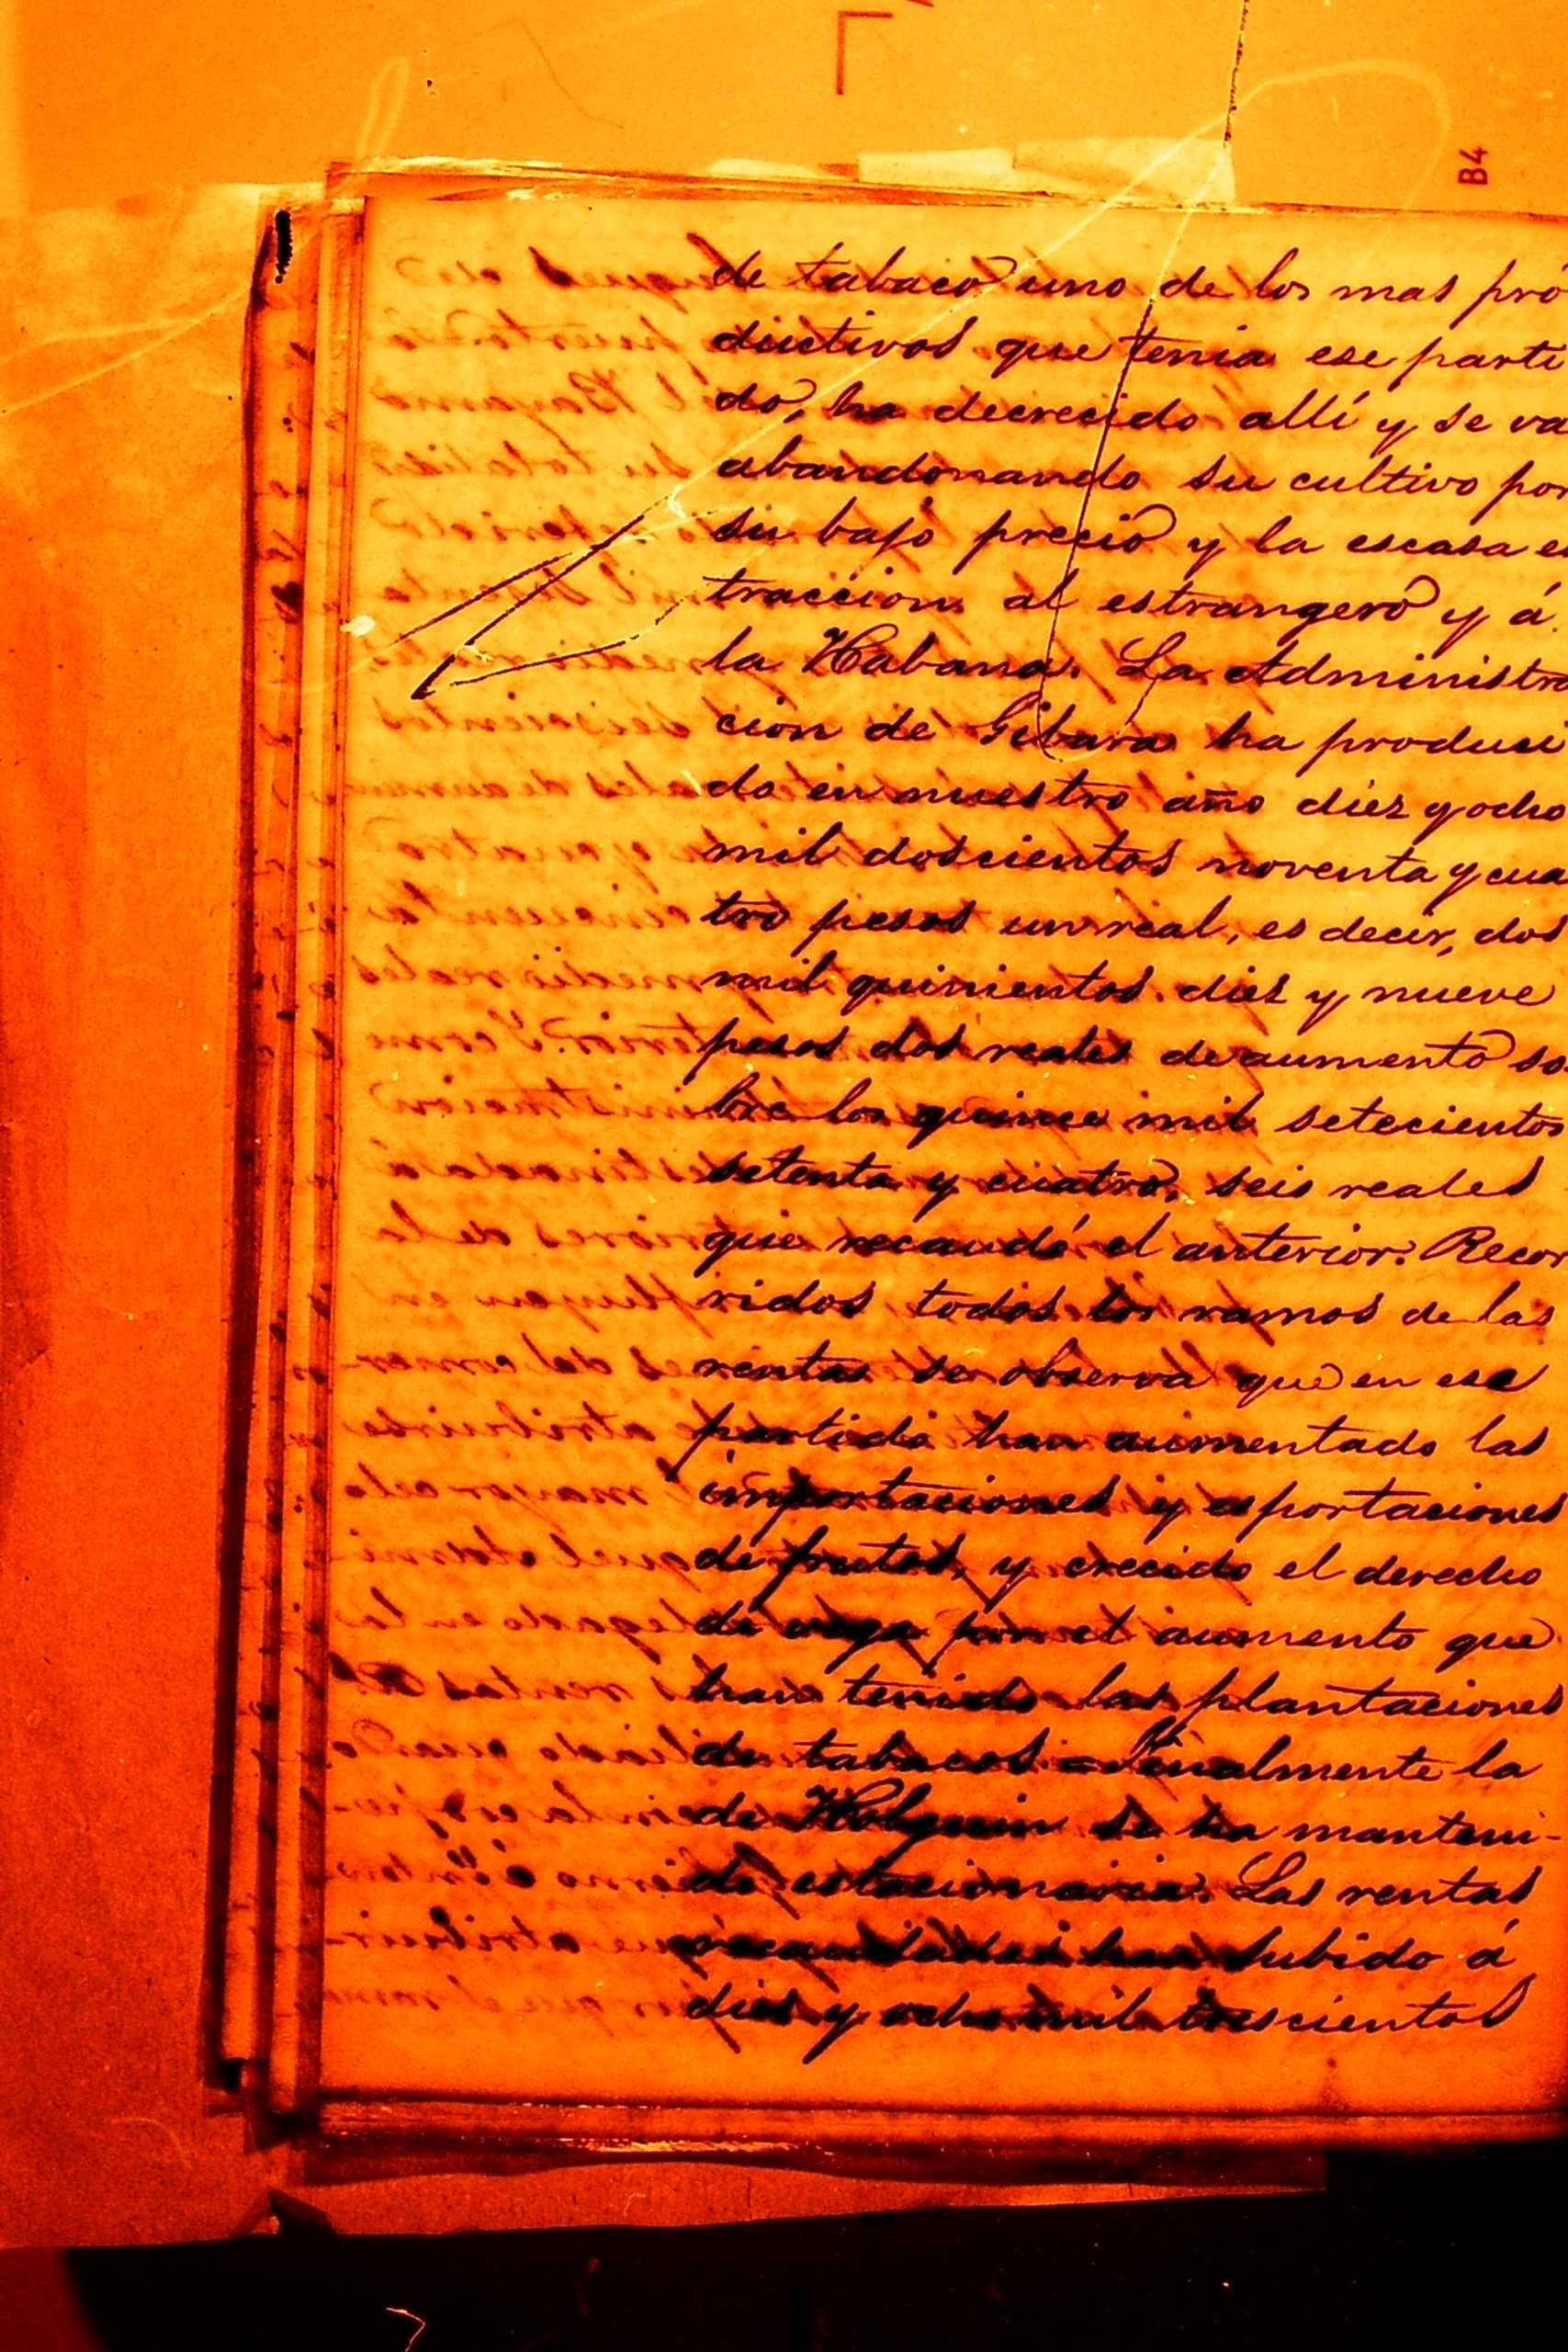 B4
de tabaco uno de los mas pro
ductivos que tenia ese parti
do, ha decrecido allí y se va
abandonando su cultivo por
su bajo precio y la escasa es
traccion al estrangero y á
la Habana. La Administra
cion de Gibara ha produci
do en nuestro año diez y ocho
mil doscientos noventa y cua
tro pesos un real, es decir, dos
mil quinientos diez y nueve
pesos dos reales de aumento so
bre los quince mil setecientos
setenta y cuatro, seis reales
que recaudó el anterior. Recor
ridos todos los ramos de las
rentas se observa que en ese
partido han aumentado las
importaciones y esportaciones
de frutos, y crecido el derecho
de vega por el aumento que
han tenido las plantaciones
de tabacos. Finalmente la
de Holguin se ha manteni-
do estacionaria. Las rentas
recaudadas han subido á
diez y ocho mil trescientos